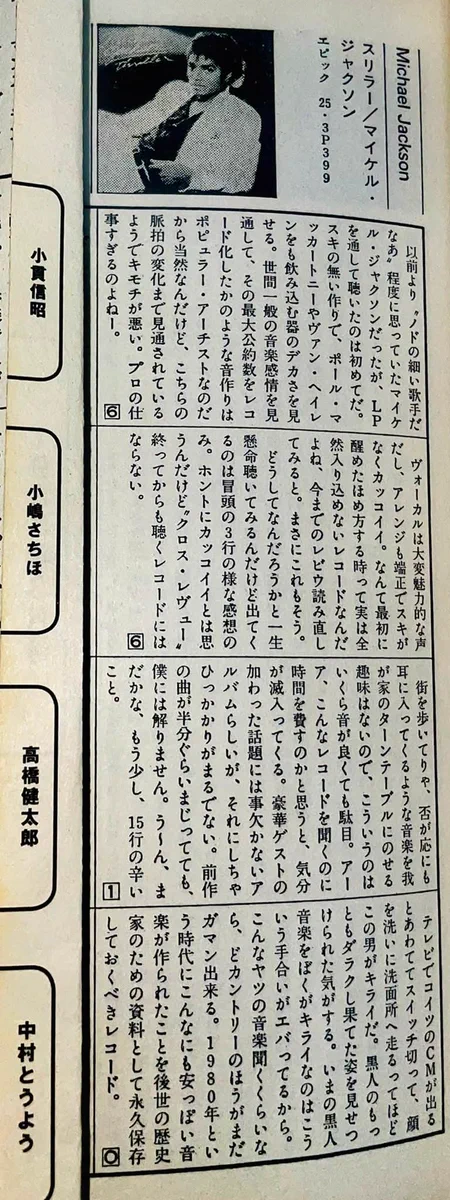 Michael Jackson
スリラー／マイケル・
ジャクソン
エピック 25・3P399
Thriller
小貫信昭
以前より〝ノドの細い歌手だ
なあ〟程度に思っていたマイケ
ル・ジャクソンだったが、LP
を通して聴いたのは初めてだ。
スキの無い作りで、ポール・マ
ッカートニーやヴァン・ヘイレ
ンをも飲み込む器のデカさを見
せる。世間一般の音楽感情を見
通して、その最大公約数をレコ
ード化したかのような音作りは
ポピュラー・アーチストなのだ
から当然なんだけど、こちらの
脈拍の変化まで見通されている
ようでキモチが悪い。プロの仕
事すぎるのよねー。
6
小嶋さちほ
ヴォーカルは大変魅力的な声
だし、アレンジも端正でスキが
なくカッコイイ。なんて最初に
醒めたほめ方する時って実は全
然入り込めないレコードなんだ
よね、今までのレビウ読み直し
てみると。まさにこれもそう。
どうしてなんだろうかと一生
懸命聴いてみるんだけど出てく
るのは冒頭の3行の様な感想の
み。ホントにカッコイイとは思
うんだけど〝クロス・レヴュー〟
終ってからも聴くレコードには
ならない。
6
高橋健太郎
街を歩いてりゃ、否が応にも
耳に入ってくるような音楽を我
が家のターンテーブルにのせる
趣味はないので、こういうのは
いくら音が良くても駄目。アー
ア、こんなレコードを聞くのに
時間を費すのかと思うと、気分
が滅入ってくる。豪華ゲストの
加わった話題には事欠かないア
ルバムらしいが、それにしちゃ
ひっかかりがまるでない。前作
の曲が半分ぐらいまじってても、
僕には解りません。う〜ん、ま
だかな、もう少し、15行の辛い
こと。
1
中村とうよう
テレビでコイツのCMが出る
とあわててスイッチ切って、顔
を洗いに洗面所へ走るってほど
この男がキライだ。黒人のもっ
ともダラクし果てた姿を見せつ
けられた気がする。いまの黒人
音楽をぼくがキライなのはこう
いう手合いがエバってるから。
こんなヤツの音楽聞くくらいな
ら、どカントリーのほうがまだ
ガマン出来る。1980年とい
う時代にこんなにも安っぽい音
楽が作られたことを後世の歴史
家のための資料として永久保存
しておくべきレコード。
0